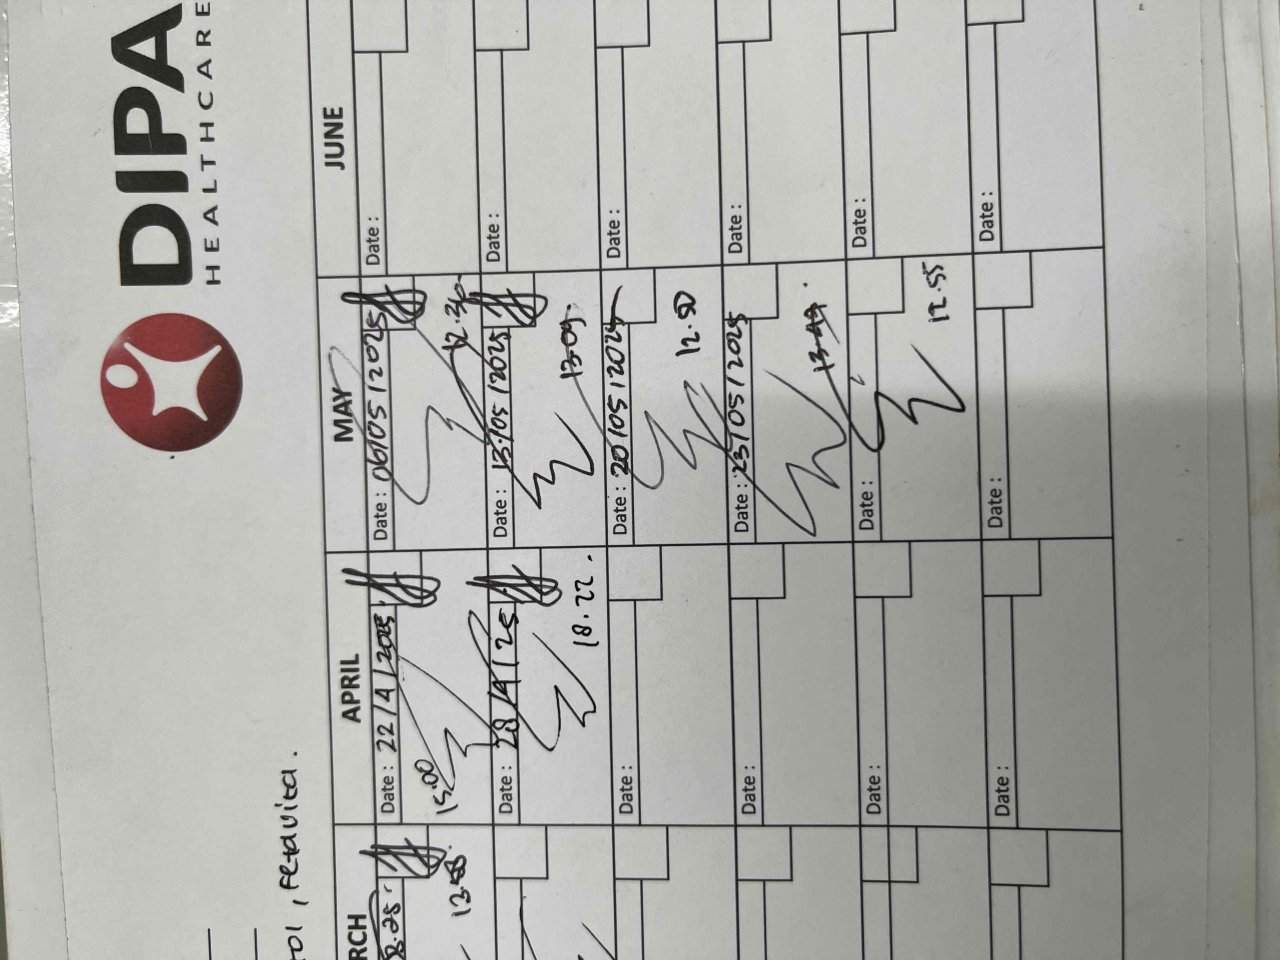 DIPA
HEALTHCARE
, Fetavita.
RCH
APRIL
MAY
JUNE
Date : 22/4/2025
Date : 06/05/2025
Date :
15.00
12.30
12.58
Date : 28/4/25
Date : 13/05/2025
Date :
18.22.
13.09.
Date :
Date : 20/05/2025
Date :
12.50
Date :
Date : 23/05/2025
Date :
13.49.
Date :
Date :
Date :
12.55
Date :
Date :
Date :